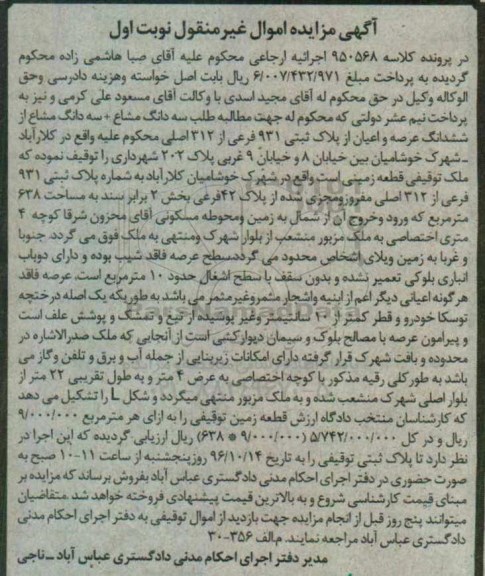 آگهی مزایده اموال غیر منقول نوبت اول
در پرونده کلاسه ۹۵۰۵۶۸ اجرائیه ارجاعی محکوم علیه آقای صبا هاشمی زاده محکوم
گردیده به پرداخت مبلغ ۶/۰۰۷/۴۳۲/۹۷۱ ریال بابت اصل خواسته وهزینه دادرسی وحق
الوکاله وکیل در حق محکوم له آقای مجید اسدی با وکالت آقای مسعود علی کرمی و نیز به
پرداخت نیم عشر دولتی که محکوم له جهت مطالبه طلب سه دانگ مشاع + سه دانگ مشاع از
ششدانگ عرصه و اعیان از پلاک ثبتی ۹۳۱ فرعی از ۳۱۲ اصلی محکوم علیه واقع در کلارآباد
ـ شهرک خوشامیان بین خیابان ۸ و خیابان ۹ غربی پلاک ۲۰۲ شهرداری را توقیف نموده که
ملک توقیفی قطعه زمینی است واقع در شهرک خوشامیان کلارآباد به شماره پلاک ثبتی ۹۳۱
فرعی از ۳۱۲ اصلی مفروزومجزی شده از پلاک ۴۲فرعی بخش ۲ برابر سند به مساحت ۶۳۸
مترمربع که ورود وخروج آن از شمال به زمین ومحوطه مسکونی آقای مخزون شرقا کوچه ۴
متری اختصاصی به ملک مزبور منشعب از بلوار شهرک ومنتهی به ملک فوق می گردد. جنوبا
و غربا به زمین ویلای اشخاص محدود می گرددسطح عرصه فاقد شیب بوده و دارای دوباب
انباری بلوکی تعمیر نشده و بدون سقف با سطح اشغال حدود ۱۰ مترمربع است. عرصه فاقد
هرگونه اعیانی دیگر اعم از ابنیه واشجار مثمروغیرمثمر می باشد به طوریکه یک اصله درختچه
توسکا خودرو و قطر کمتر از ۱۰ سانتیمتر وغیر پوشیده از تیغ و تمشک و پوشش علف است
و پیرامون عرصه با مصالح بلوک و سیمان دیوارکشی است از آنجایی که ملک صدرالاشاره در
محدوده و بافت شهرک قرار گرفته دارای امکانات زیربنایی از جمله آب و برق و تلفن وگاز می
باشد به طور کلی رقبه مذکور با کوچه اختصاصی به عرض ۴ متر و به طول تقریبی ۲۲ متر از
بلوار اصلی شهرک منشعب شده و به ملک مزبور منتهی میگردد و شکل L را تشکیل می دهد
که کارشناسان منتخب دادگاه ارزش قطعه زمین توقیفی را به ازای هر مترمربع ۹/۰۰۰/۰۰۰
ریال و در کل ۵/۷۴۲/۰۰۰/۰۰۰ (۹/۰۰۰/۰۰۰ * ۶۳۸) ریال ارزیابی گردیده که این اجرا در
نظر دارد تا پلاک ثبتی توقیفی را به تاریخ ۹۶/۱۰/۱۴ روزپنجشنبه از ساعت ۱۱-۱۰ صبح به
صورت حضوری در دفتر اجرای احکام مدنی دادگستری عباس آباد بفروش برساند که مزایده بر
مبنای قیمت کارشناسی شروع و به بالاترین قیمت پیشنهادی فروخته خواهد شد. متقاضیان
میتوانند پنج روز قبل از انجام مزایده جهت بازدید از اموال توقیفی به دفتر اجرای احکام مدنی
دادگستری عباس آباد مراجعه نمایند. م.الف ۳۵۶-۳۰
مدیر دفتر اجرای احکام مدنی دادگستری عباس آباد ـ ناجی